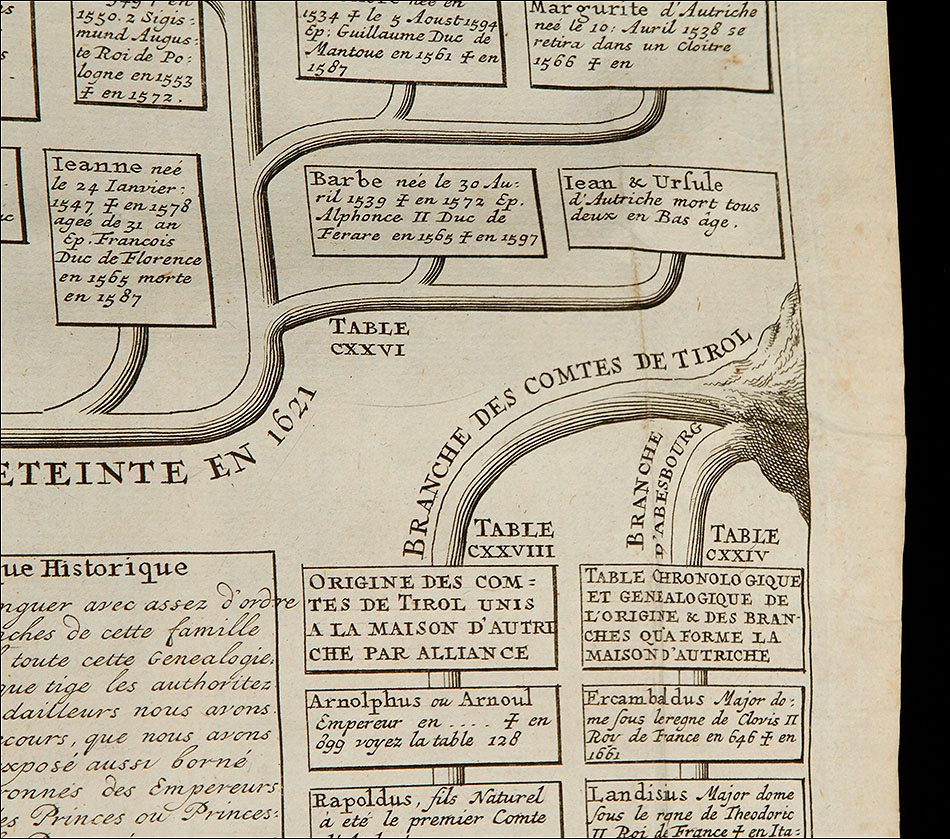 1550. 2 Sigis=
mund Augus=
te Roi de Po=
logne en 1553
☩ en 1572.
1534 ☩ le 5 Aoust 1594
Ep: Guillaume Duc de
Mantoue en 1561 ☩ en
1587
Margurite d'Autriche
neé le 10: Auril 1538 se
retira dans un Cloitre
1566 ☩ en
Ieanne neé
le 24 Ianvier:
1547 ☩ en 1578
ageé de 31 an
Ep. Francois
Duc de Florence
en 1565 morte
en 1587
Barbe neé le 30 Au=
ril 1539 ☩ en 1572 Ep.
Alphonce II Duc de
Ferare en 1565 ☩ en 1597
Iean & Ursule
d'Autriche mort tous
deux en Bas âge.
TABLE
CXXVI
ETEINTE EN 1621
BRANCHE DES COMTES DE TIROL
BRANCHE
D'ABESBOURG
TABLE
CXXVIII
TABLE
CXXIV
ue Historique
nguer avec assez d'ordre
ches de cette famille
toute cette Genealogie.
que tige les authoritez
dailleurs nous avons
ecours, que nous avons
xposé aussi borné
ronnés des Empereurs
es Princes ou Princes=
ORIGINE DES COM=
TES DE TIROL UNIS
A LA MAISON D'AUTRI
CHE PAR ALLIANCE
Arnolphus ou Arnoul
Empereur en .... ☩ en
899 voyez la table 128
Rapoldus, fils Naturel
à eté le premier Comte
TABLE CHRONOLOGIQUE
ET GENEALOGIQUE DE
L'ORIGINE & DES BRAN-
CHES QU'A FORME LA
MAISON D'AUTRICHE
Ercambadus Major do=
me sous le regne de Clovis II
Roy de France en 646 ☩ en
1661
Landisius Major dome
sous le rgne de Theodoric
II Roi de France ☩ en Ita=